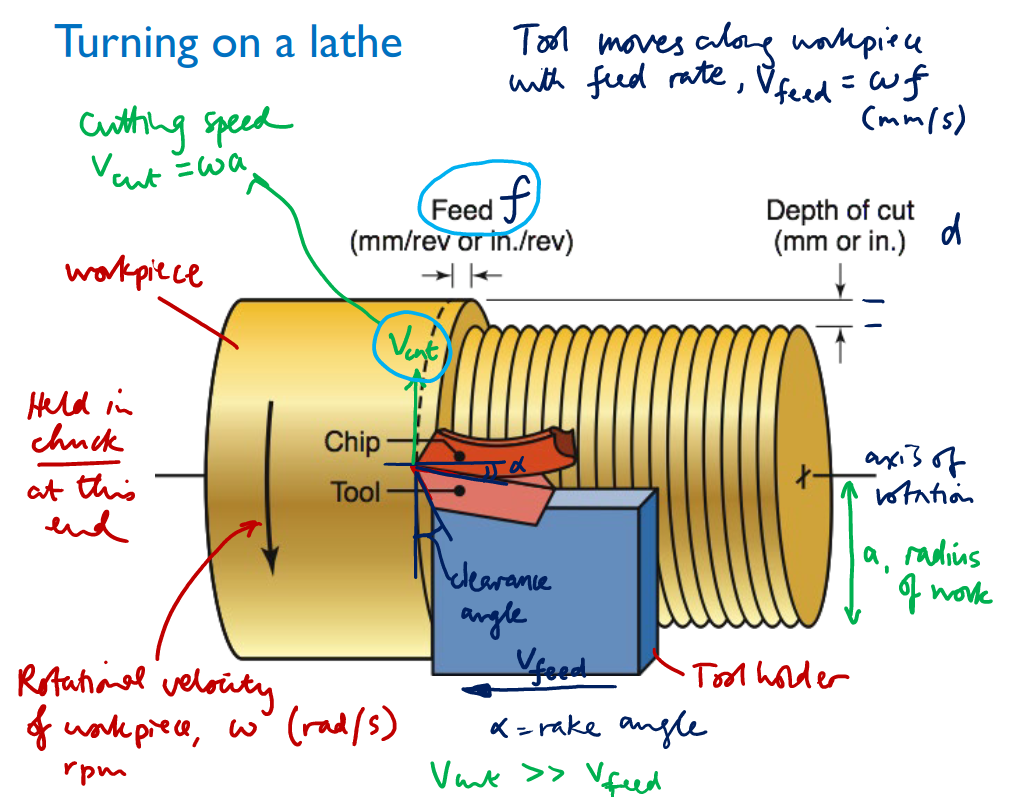 Turning on a lathe
Tool moves along workpiece
with feed rate, Vfeed = ωf
(mm/s)
Cutting speed
Vcut = ωa
Feed f
(mm/rev or in./rev)
Depth of cut
(mm or in.)
d
workpiece
Vcut
Held in
chuck
at this
end
Chip
α
Tool
axis of
rotation
a, radius
of work
clearance
angle
Vfeed
Tool holder
Rotational velocity
of workpiece, ω (rad/s)
rpm
α = rake angle
Vcut >> Vfeed